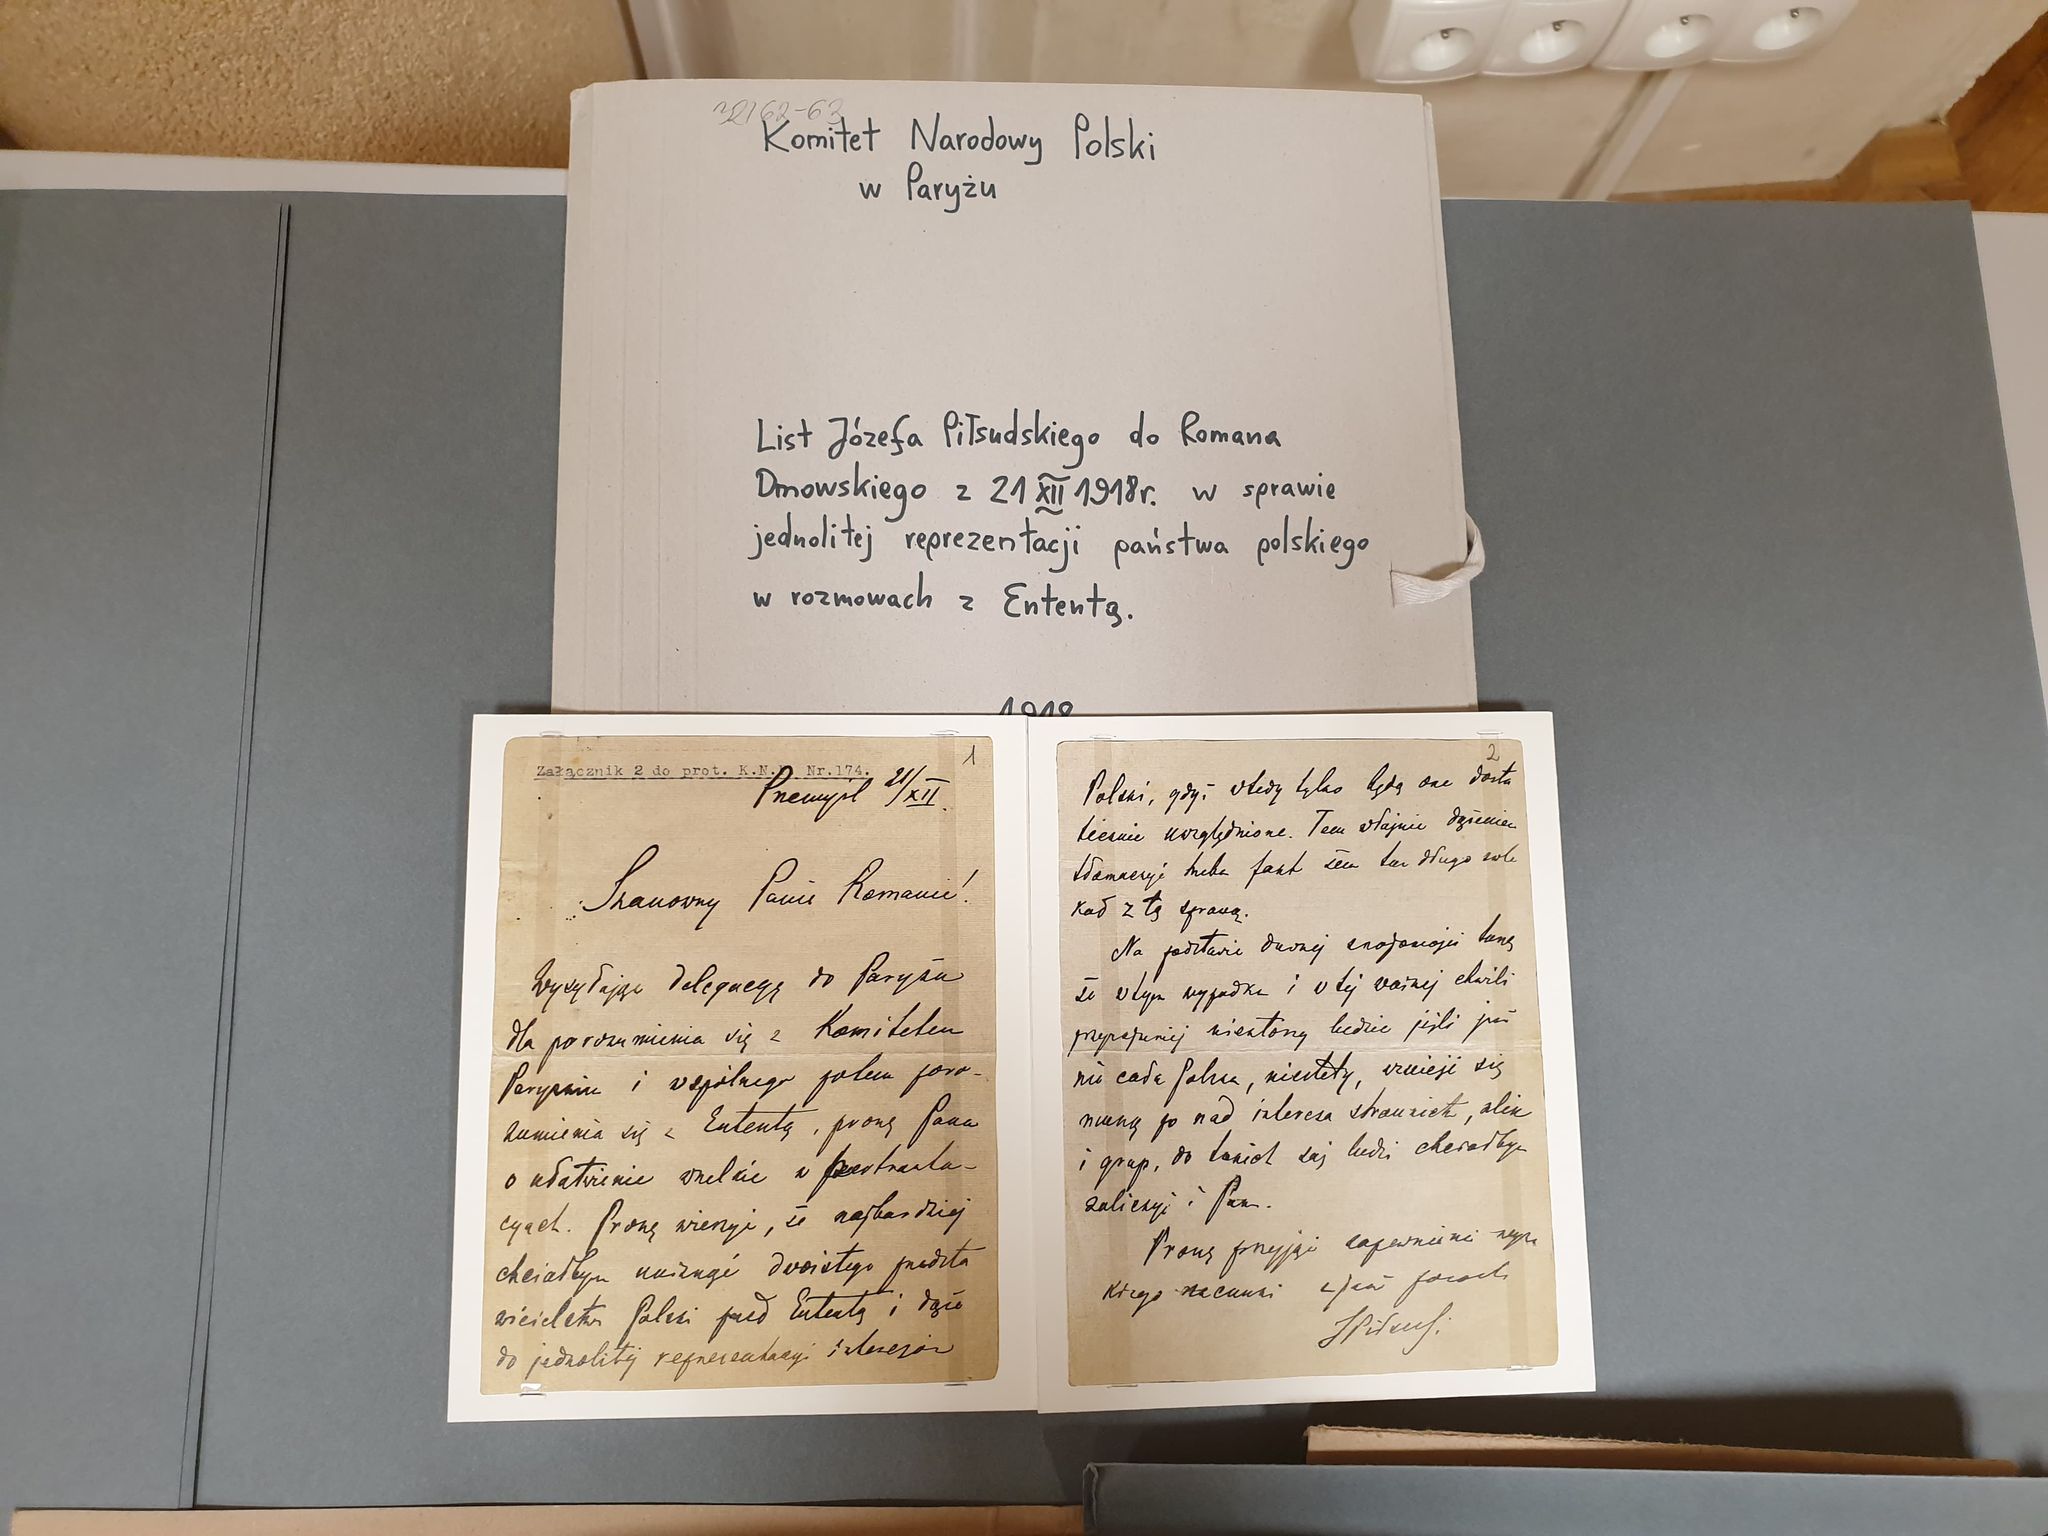 32162-63
Komitet Narodowy Polski
w Paryżu
List Józefa Piłsudskiego do Romana
Dmowskiego z 21 XII 1918r. w sprawie
jednolitej reprezentacji państwa polskiego
w rozmowach z Ententą.
1918
1
Załącznik 2 do prot. K.N.P. Nr.174.
Przemyśl 21/XII.
Szanowny Panie Romanie!
Wysyłając delegacyę do Paryża
dla porozumienia się z Komitetem
Paryskim i wspólnego potem poro-
zumienia się z Ententą, proszę Pana
o ułatwienie wszelkie w pertrakta-
cyach. Proszę wierzyć, że najbardziej
chciałbym uniknąć dwoistego przedsta
wicielstwa Polski przed Ententą i dążę
do jednolitej reprezentacyi interesów
2
Polski, gdyż wtedy tylko będą one dosta
tecznie uwzględnione. Tem właśnie dążeniem
tłomaczyć trzeba fakt żem tak długo zwle
kał z tą sprawą.
Na podstawie dawnej znajomości
że w tym wypadku i w tej ważnej chwili
przynajmniej niektórzy ludzie jeśli już
nie cała Polska, niestety, wznieść się
muszą po nad interesa stronnictw, klik
i grup, do takich zaś ludzi chciałbym
zaliczyć i Pana.
Proszę przyjąć zapewnienie wyso
kiego szacunku z jakim pozostaję
JPiłsudski